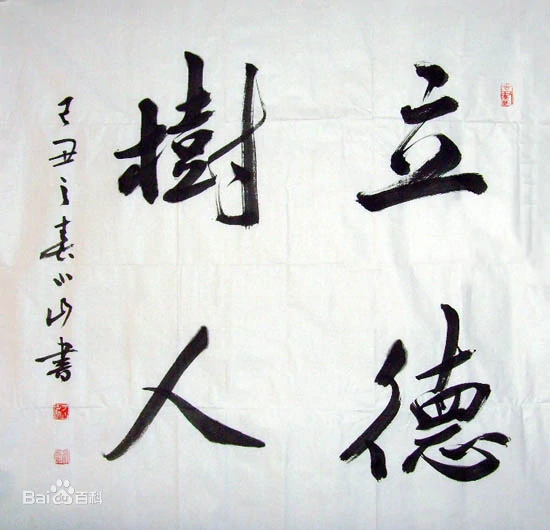 立德
樹人
己丑之春小山書
Bai百科